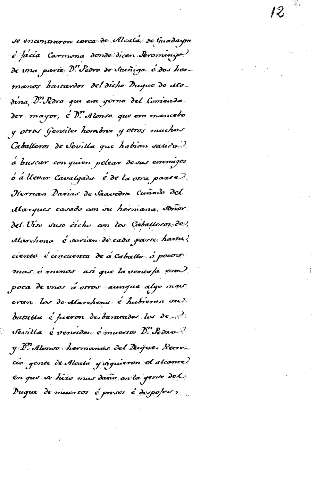 12
se encontraron cerca de Alcalá de Guadayra
é facia Carmona donde dicen Peromingo
de una parte Dn. Pedro de Stuñiga é dos her-
manos bastardos del dicho Duque de Me-
dina, Dn. Pedro que era yerno del Comenda
dor mayor, é Dn. Alonso que era mancebo
y otros Gentiles hombres y otros muchos
Caballeros de Sevilla que habian salido
á buscar con quien pelear de sus enemigos
ó á llevar Cavalgada é de la otra parte
Hernan Darias de Saavedra Cuñado del
Marques casado con su hermana, Señor
del Viso suso dicho con los Caballeros de
Marchena é serian de cada parte hasta
ciento é cincuenta de á Caballo ó pocos
mas ó menos asi que la ventaja era
poca de unos á otros aunque algo mas
eran los de Marchena é hubieron su
batalla é fueron desbaratados los de
Sevilla é vencidos é muertos Dn. Pedro
y Dn. Alonso hermanos del Duque.
cio gente de Alcalá y siguieron el alcance
en que se hizo mas daño en la gente del
Duque de muertos é presos é despojos,